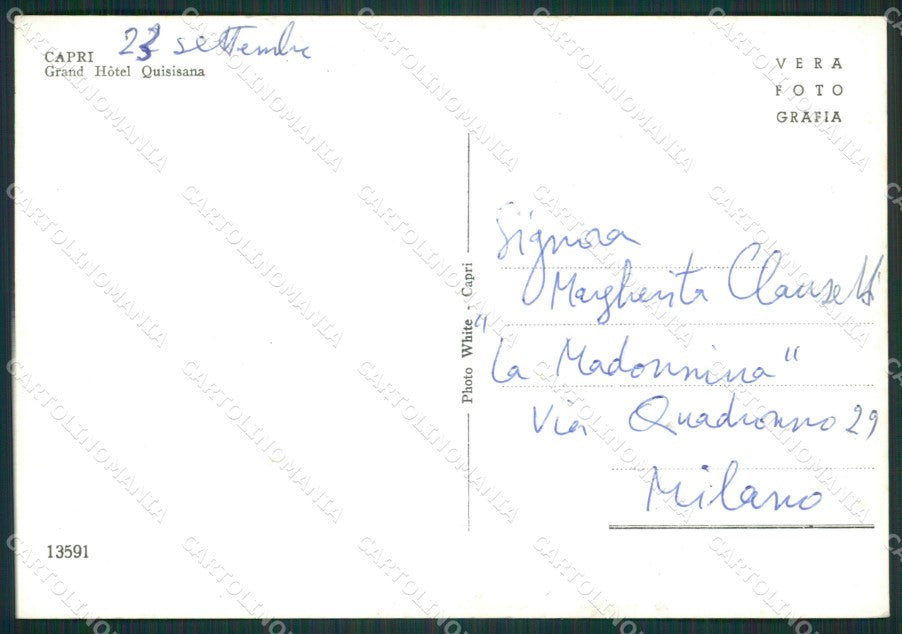 23 settembre
CAPRI
Grand Hôtel Quisisana
VERA
FOTO
GRAFIA
Signora
Margherita Clausetti
"La Madonnina"
Via Quadronno 29
Milano
Photo White - Capri
13591
CARTOLINOMANIA